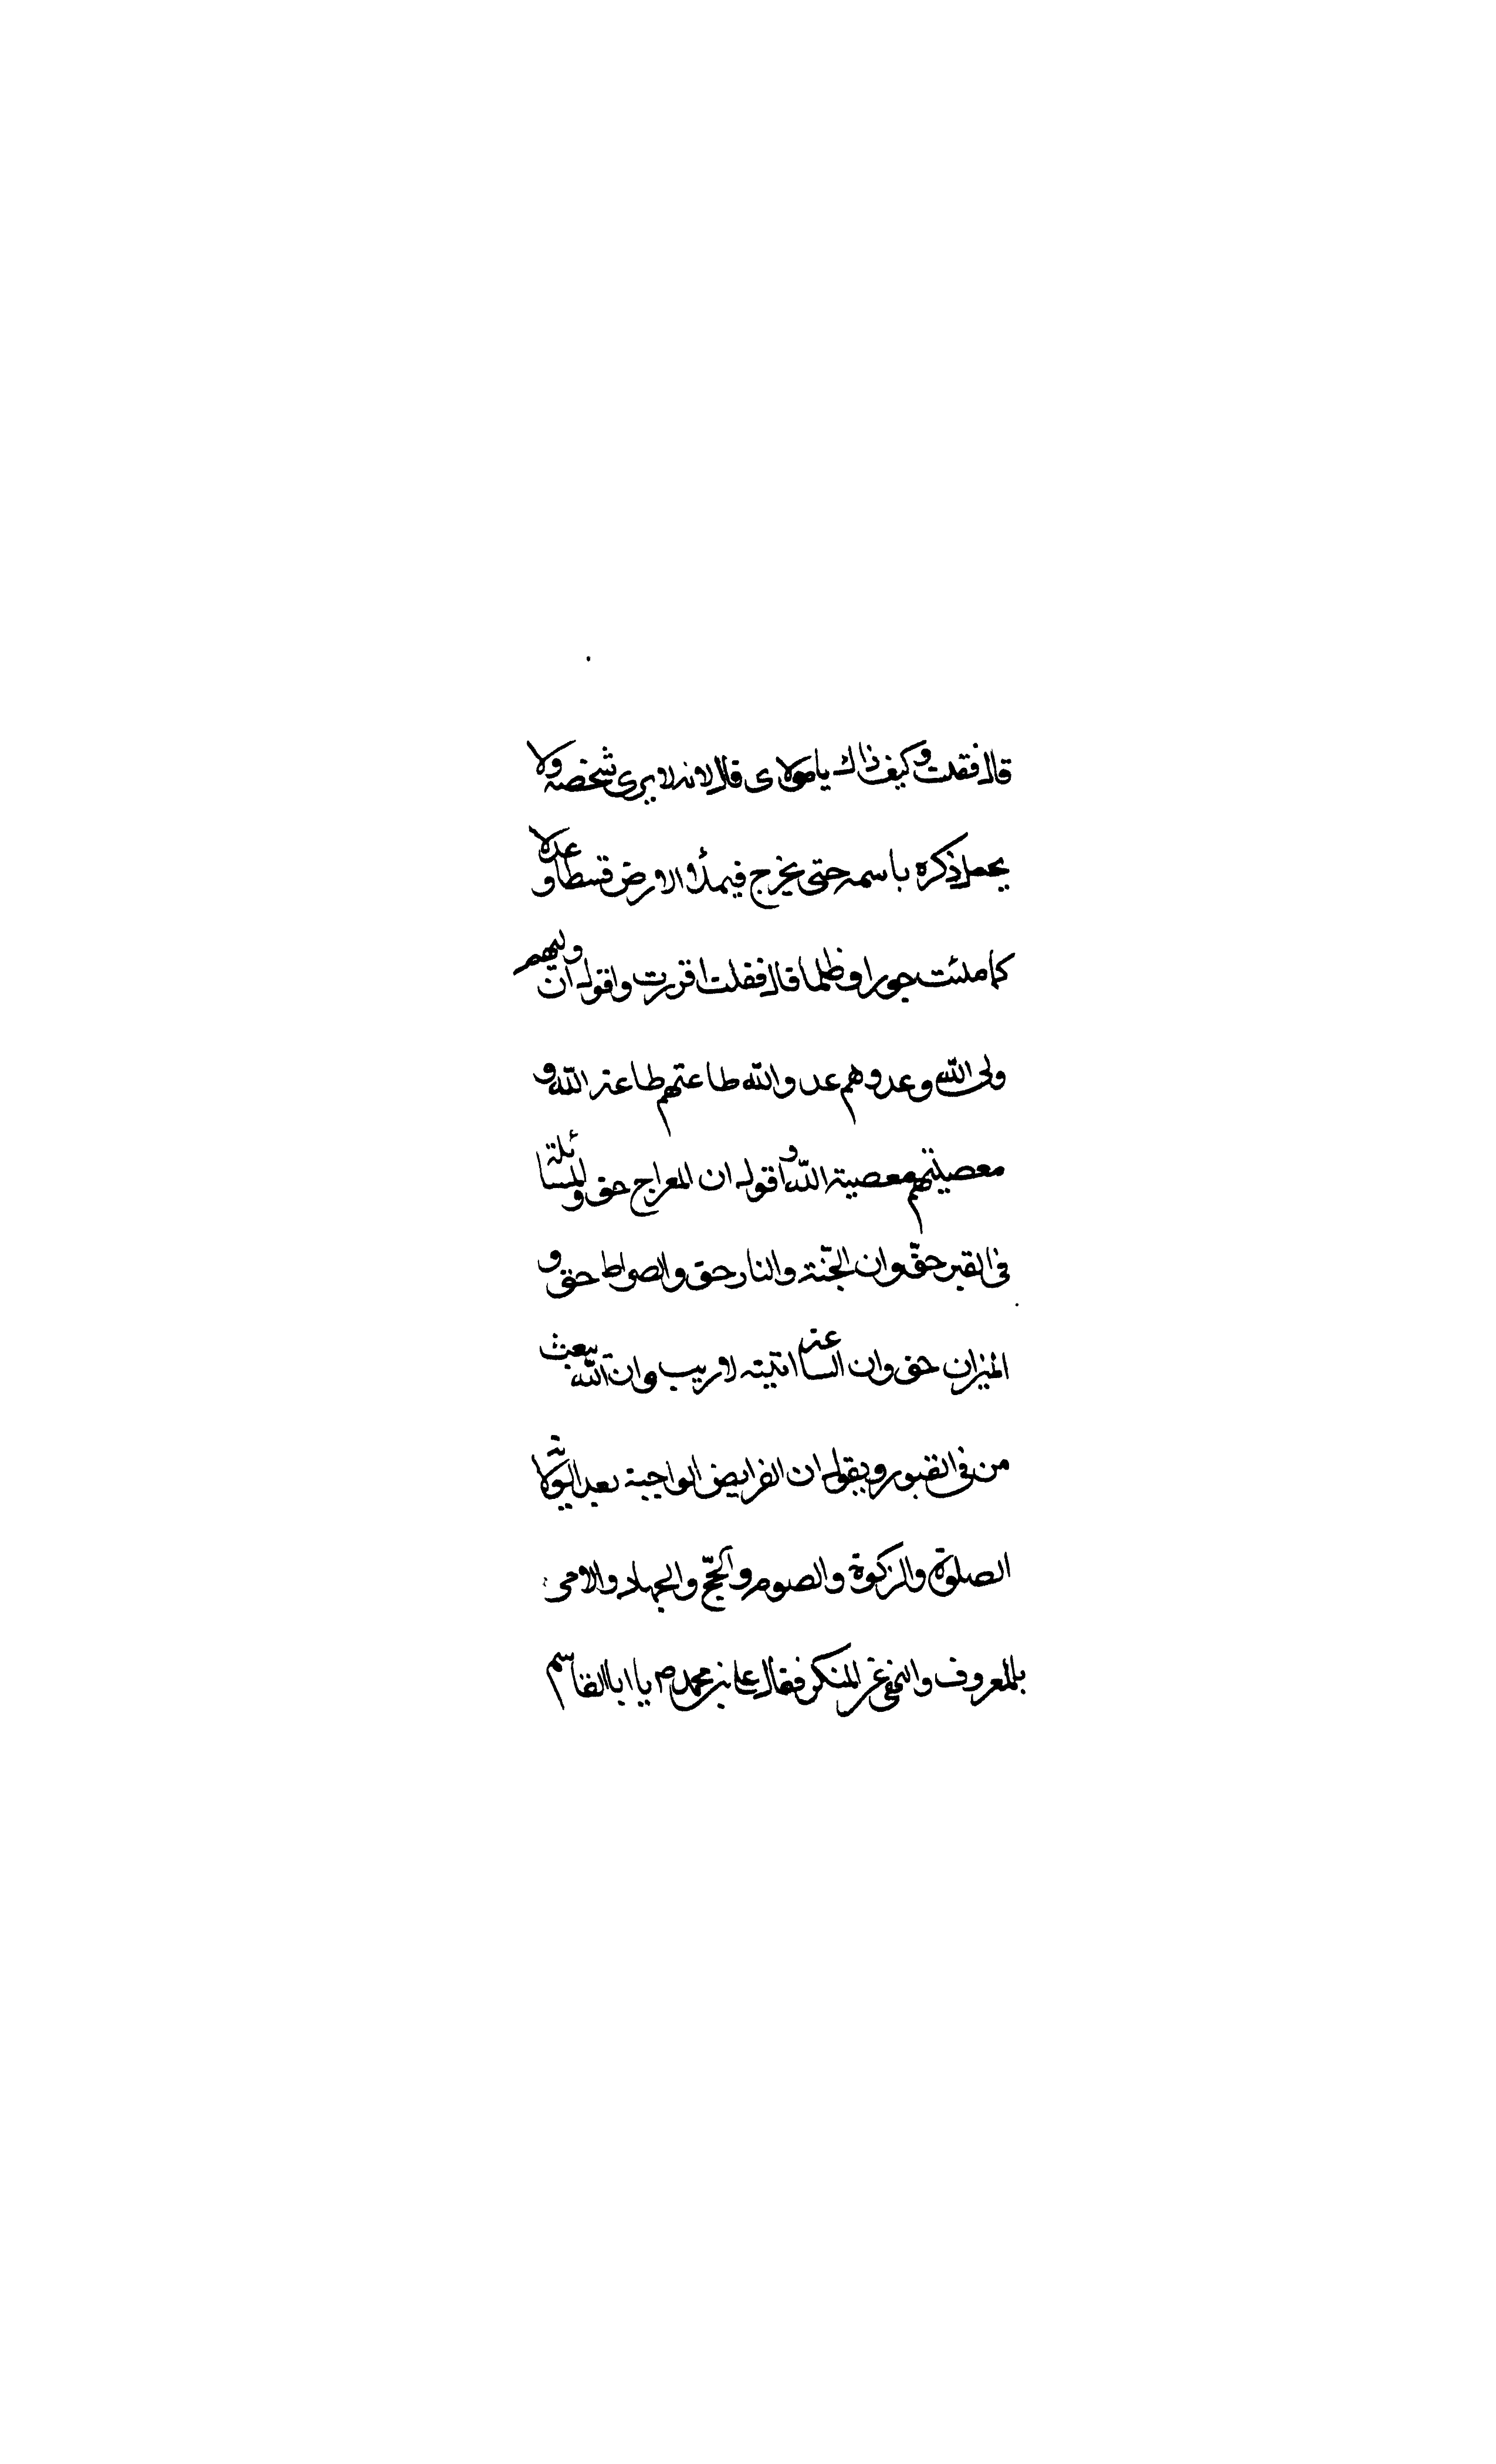 قال فقلت وكيف ذاك يا مولاى قال لانه لا يرى شخصه ولا
يحمل ذكره باسمه حتى يخرج فيملأ الارض قسطا وعدلا
كما ملئت جورا وظلما قال فقلت اقررت واقول ان وليهم
ولى الله وعدوهم عدو الله طاعتهم طاعة الله و
معصيتهم معصية الله واقول ان المعراج حق والمسائلة
فى القبر حقّ وان الجنّة والنار حق والصراط حق و
الميزان حق وان الساعة اتيته لا ريب وان الله يبعث
من فى القبور ويقول ان الفرايض الواجبة بعد الولا
الصلوة والزكوة والصوم والحجّ والجهاد والامر
بالمعروف والنهى عن المنكر فقال على بن محمد ص يا ابا القاسم